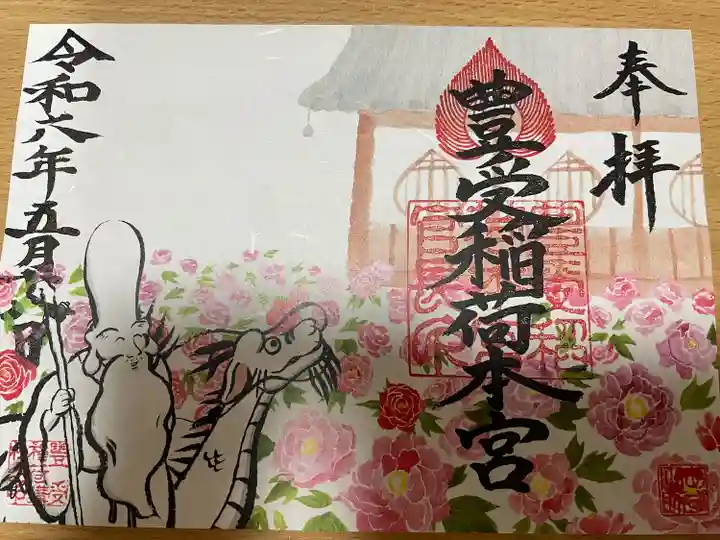 奉拝
豊受稲荷本宮
令和六年五月